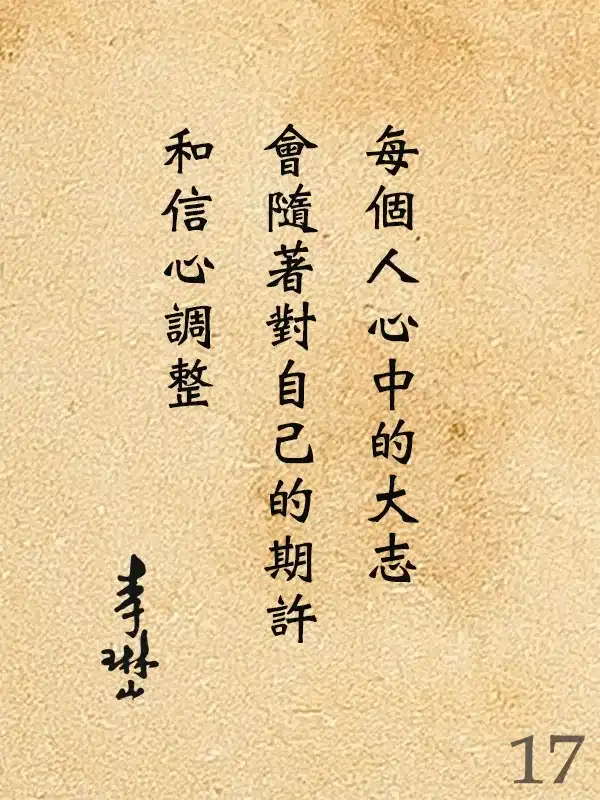 每個人心中的大志
會隨著對自己的期許
和信心調整
李琳山
17